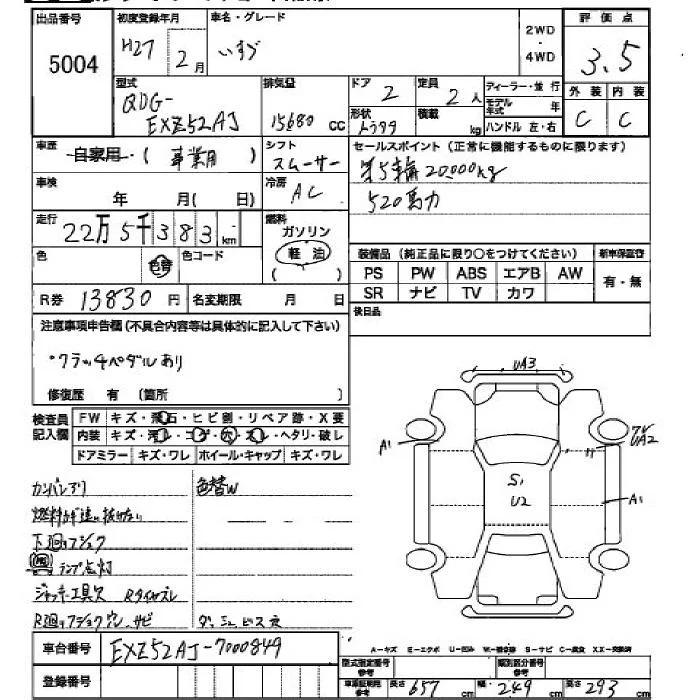 出品番号 初度登録年月 車名・グレード 2WD・4WD 評価点
5004 H27年 2月 いすゞ 3.5
型式 排気量 ドア 定員 ディーラー・並行 外装 内装
QDG-EXZ52AJ 15680 CC 2 2人 モデル年式 年 C C
形状 積載 kg ハンドル 左・右
トラクタ
車歴 自家用・(事業用) シフト セールスポイント(正常に機能するものに限ります)
スムーサー 第5輪20000kg
車検 年 月(日) 冷房 AC 520馬力
走行 22万5千383km 燃料 ガソリン 軽油 ( )
色 色替 色コード 装備品(純正品に限り〇をつけてください) 新車保証書
PS PW ABS エアB AW 有・無
R券 13830円 名変期限 月 日 SR ナビ TV カワ
後日品
注意事項申告欄(不具合内容等は具体的に記入して下さい)
・クラッチペダルあり
修復歴 有 〔箇所 〕
検査員記入欄 FW キズ・飛石・ヒビ割・リペア跡・X要
内装 キズ・汚レ・コゲ・穴・スレ・ヘタリ・破レ
ドアミラー キズ・ワレ ホイール・キャップ キズ・ワレ
UA3
A1
UA2
S1
U2
A1
カンバン 色替W
燃料
下廻りフジョク
ランプ点灯
ジャッキ工具欠 Rタイヤズレ
R廻りフジョク穴 サビ ダッシュビス穴
車台番号 EXZ52AJ-7000849
A-キズ E-エクボ U-凹み W-補修跡 S-サビ C-腐食 XX-交換済
登録番号 型式指定番号 参考 類別区分番号 参考
車庫証明用参考 長さ657cm 幅・249cm 高さ293cm